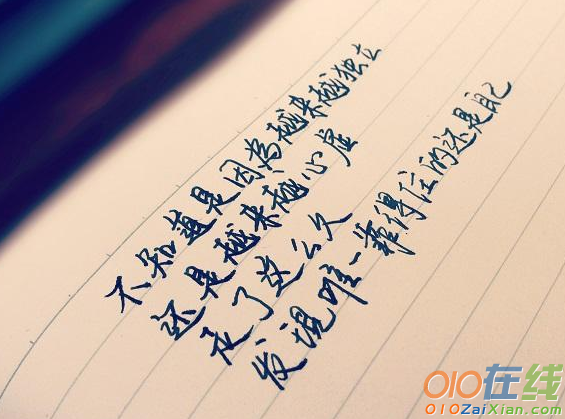 不知道是因為越来越独立
还是越来越心虚
走了这么久
发现唯一靠得住的还是自己
010在线
010ZaiXian.com